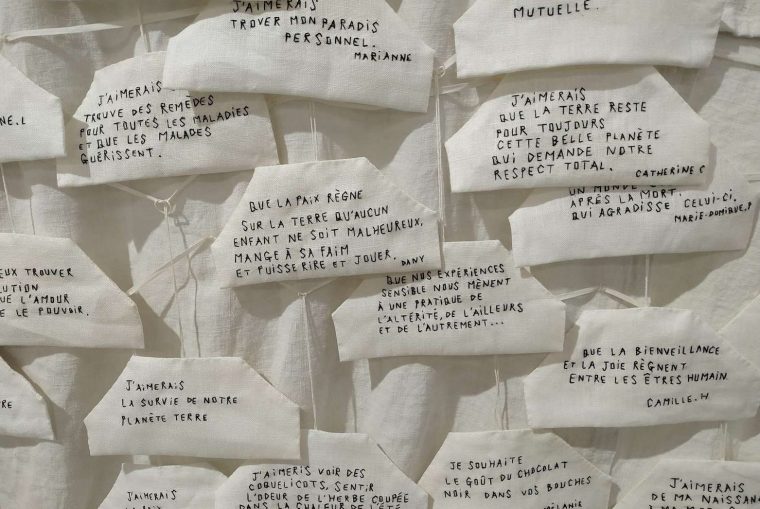 J'AIMERAIS
TROVER MON PARADIS
PERSONNEL.
MARIANNE
MUTUELLE.
J'AIMERAIS
TROUVE DES REMÈDES
POUR TOUTES LES MALADIES
ET QUE LES MALADES
GUÉRISSENT.
J'AIMERAIS
QUE LA TERRE RESTE
POUR TOUJOURS
CETTE BELLE PLANÈTE
QUI DEMANDE NOTRE
RESPECT TOTAL.
CATHERINE C
UN MONDE
APRÈS LA MORT.
QUI AGRADISSE CELUI-CI.
MARIE-DOMIQUE.P
QUE LA PAIX RÈGNE
SUR LA TERRE QU'AUCUN
ENFANT NE SOIT MALHEUREUX,
MANGE À SA FAIM
ET PUISSE RIRE ET JOUER.
DANY
EUX TROUVER
LUTION
UE L'AMOUR
E LE POUVOIR.
QUE NOS EXPÉRIENCES
SENSIBLE NOUS MÈNENT
À UNE PRATIQUE DE
L'ALTÉRITÉ, DE L'AILLEURS
ET DE L'AUTREMENT...
QUE LA BIENVEILLANCE
ET LA JOIE RÈGNENT
ENTRE LES ÊTRES HUMAIN.
CAMILLE.H
J'AIMERAIS
LA SURVIE DE NOTRE
PLANÈTE TERRE
RE
J'AIMERAIS
J'AIMERIS VOIR DES
COQUELICOTS, SENTIR
L'ODEUR DE L'HERBE COUPÉE
DANS LA CHALEUR DE L'ÉTÉ
JE SOUHAITE
LE GOÛT DU CHOCOLAT
NOIR DANS VOS BOUCHES
J'AIMERAIS
DE MA NAISSAN